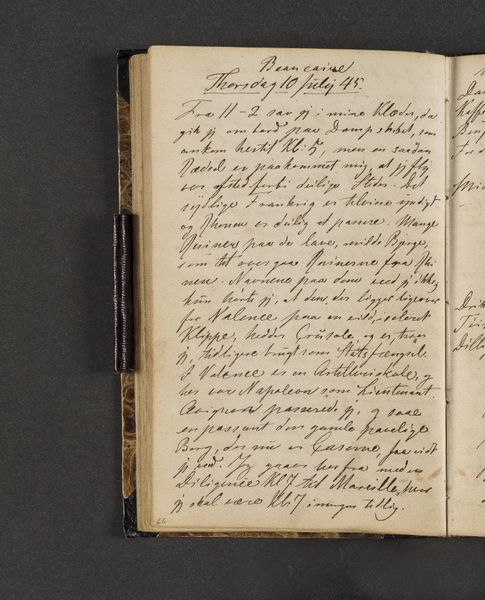 Beaucaire
Thorsdag 10 July 45.
Fra 11-2 sov jeg i mine Klæder, da
gik jeg om bord paa Dampskibet, som
ankom hertil Kl. 5, men en saadan
Rædsel er paakommet mig, at jeg flyv
er afsted forbi deilige Steder. Det
sydlige Frankrig er tilvisse yndigt
og Rhonen er deilig at passere. Mange
Ruiner paa de lave, vilde Bjerge,
som tet overgaar Ruinerne fra Rhi
nen. Navnene paa dem veed jeg ikke,
kun hørte jeg, at den, der ligger ligeover
for Valence paa en vild, isoleret
Klippe, hedder Crusole, og er, troer
jeg, tidligere brugt som Statsfængsel.
I Valence er en Artilleriskole, og
her var Napoleon som Lieutenant.
Avignon passerede jeg, og saae
en passant den gamle pavelige
Borg, der nu er Caserne, saavidt
jeg veed. Jeg gaaer herfra med en
Diligence Kl. 7 til Marseille, hvor
jeg skal være Kl. 7 imorgen tidlig.
66